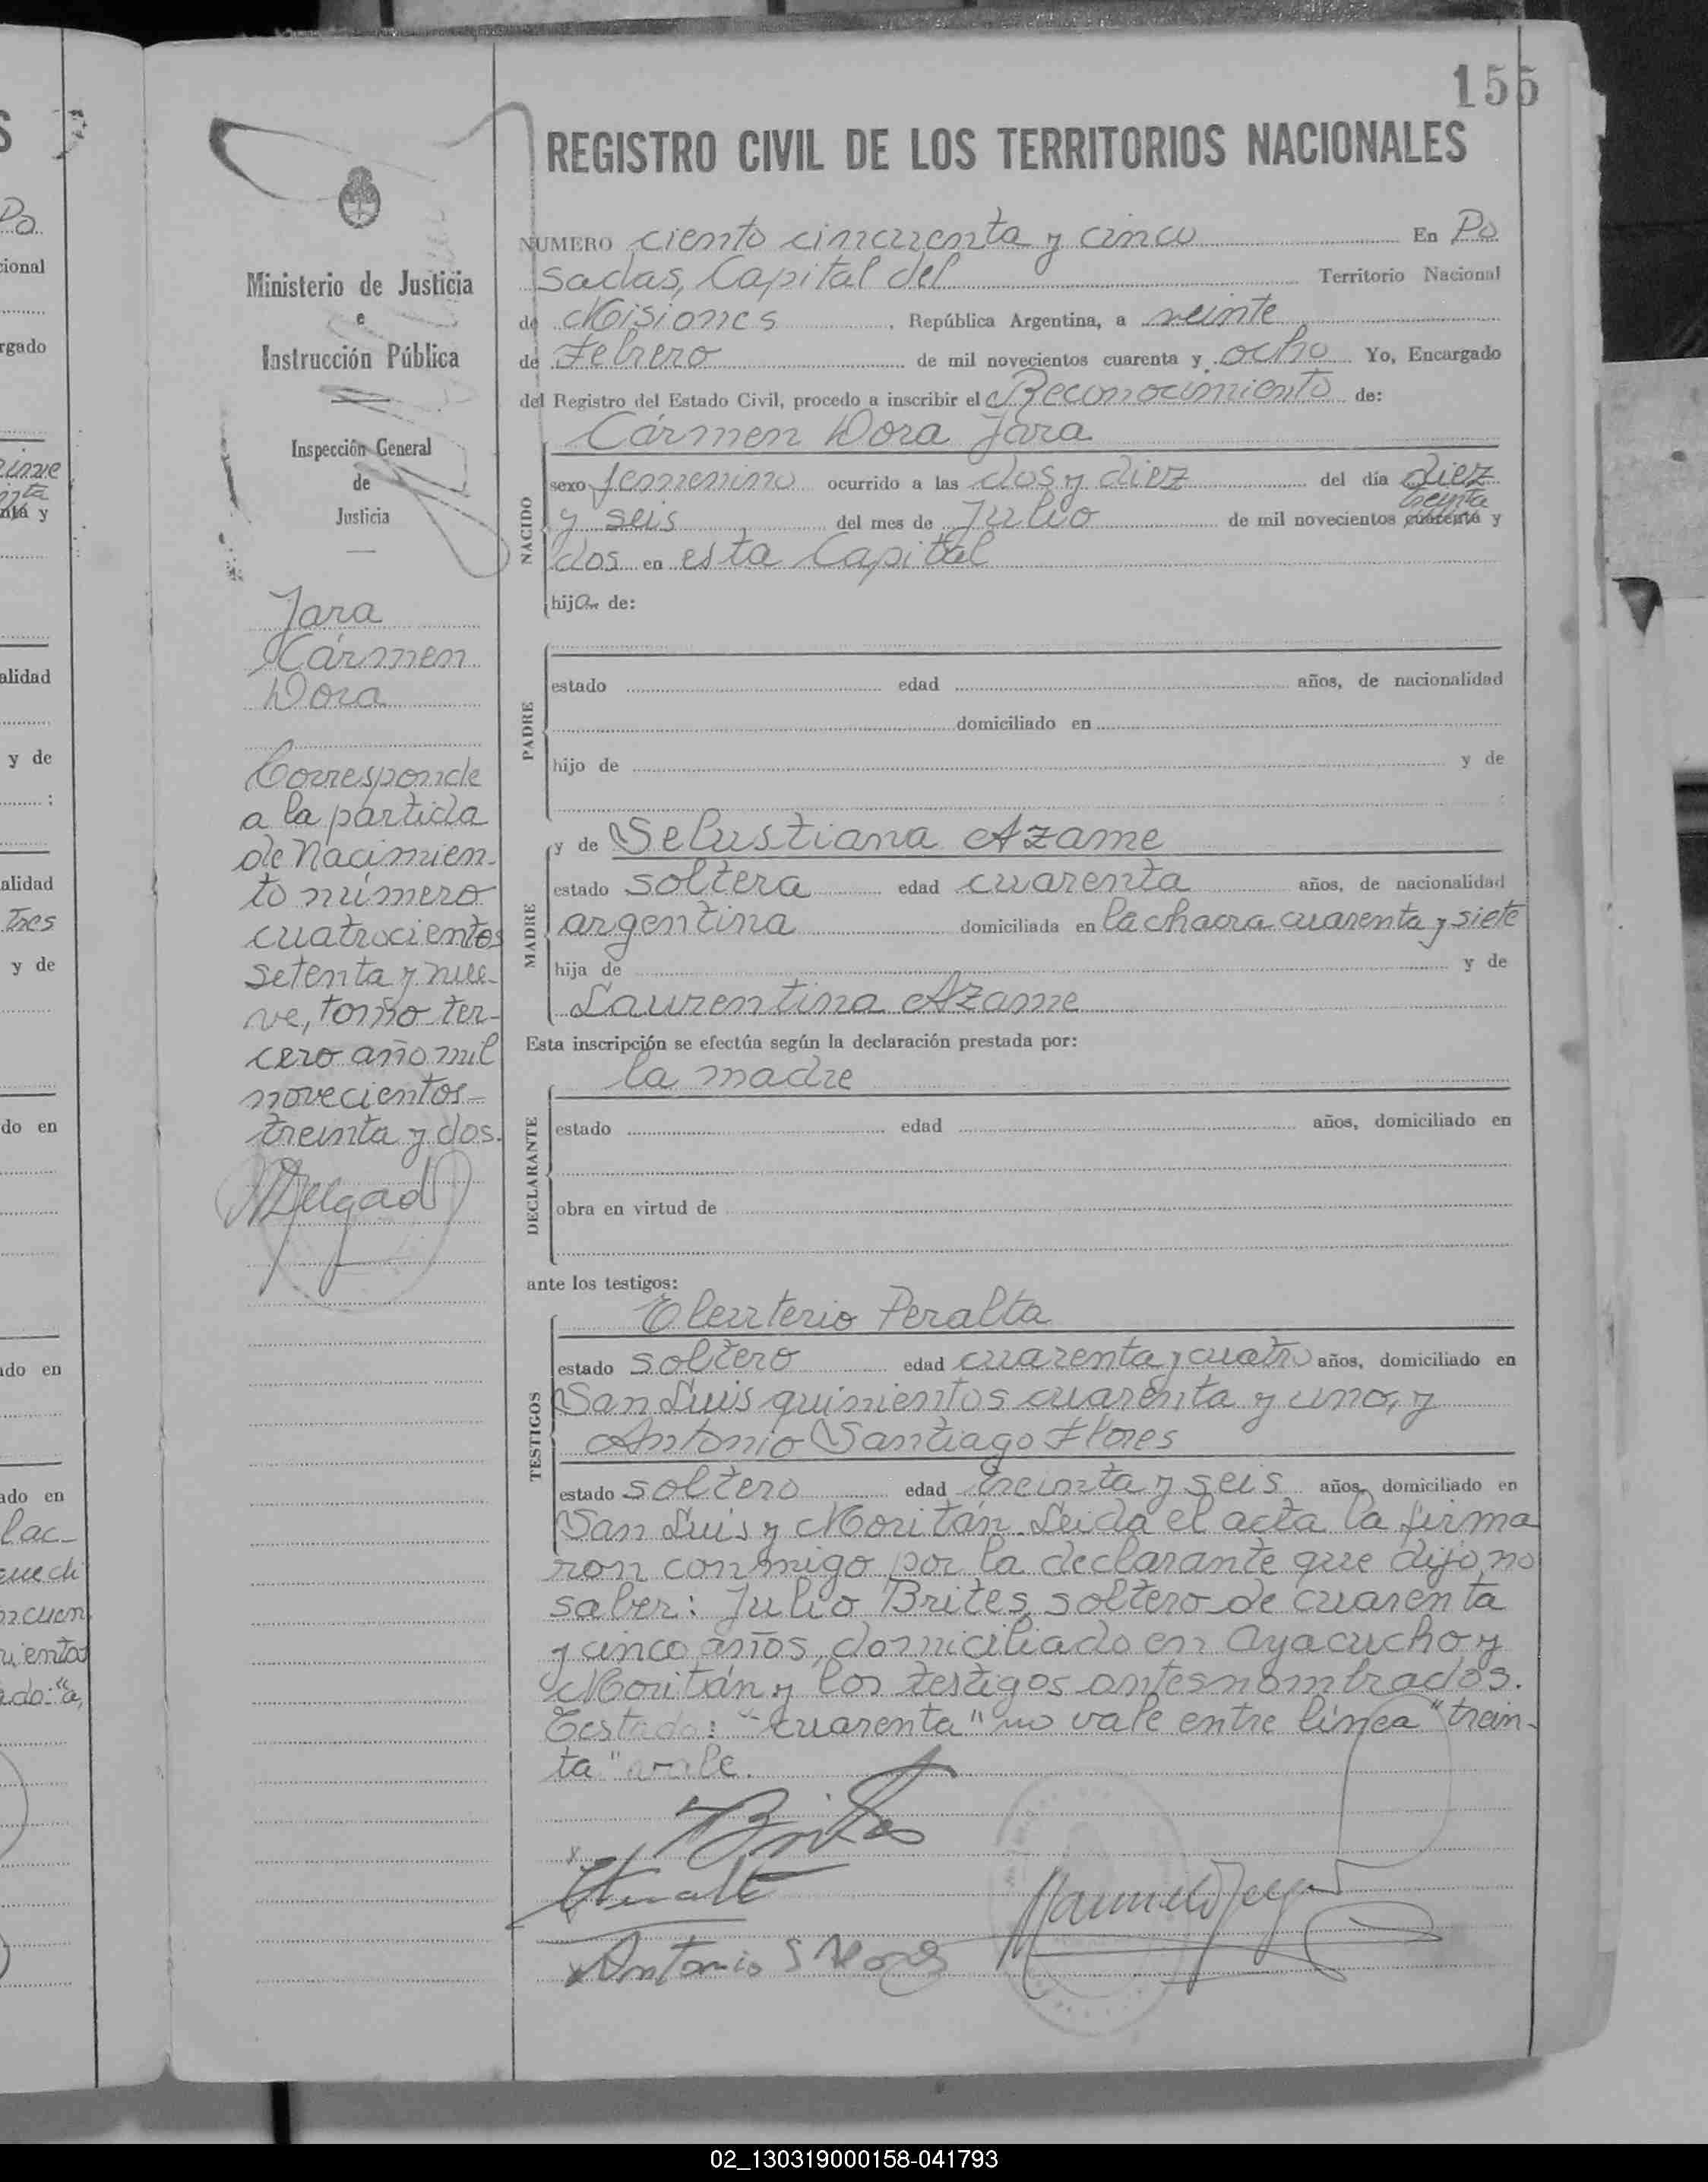 155
REGISTRO CIVIL DE LOS TERRITORIOS NACIONALES
Ministerio de Justicia
e
Instrucción Pública
Inspección General
de
Justicia
Jara
Cármen
Dora
Corresponde
a la partida
de Nacimien-
to número
cuatrocientos
setenta y nue-
ve, tomo ter-
cero año mil
novecientos
treinta y dos.
NUMERO ciento cincuenta y cinco En Po
sadas, Capital del Territorio Nacional
de Misiones, República Argentina, a veinte
de Febrero de mil novecientos cuarenta y ocho Yo, Encargado
del Registro del Estado Civil, procedo a inscribir el Reconocimiento de:
Cármen Dora Jara
NACIDO
sexo femenino ocurrido a las dos y diez del día diez
treinta
y seis del mes de Julio de mil novecientos cuarenta y
dos en esta Capital
hija de:
PADRE
estado edad años, de nacionalidad
domiciliado en
hijo de y de
MADRE
y de Selustiana Azame
estado soltera edad cuarenta años, de nacionalidad
argentina domiciliada en la chacra cuarenta y siete
hija de y de
Laurentina Azame
Esta inscripción se efectúa según la declaración prestada por:
la madre
DECLARANTE
estado edad años, domiciliado en
obra en virtud de
ante los testigos:
Eleuterio Peralta
TESTIGOS
estado soltero edad cuarenta y cuatro años, domiciliado en
San Luis quinientos cuarenta y uno, y
Antonio Santiago Flores
estado soltero edad treinta y seis años, domiciliado en
San Luis y Moritán. Leida el acta la firma
ron conmigo por la declarante que dijo no
saber: Julio Brites, soltero de cuarenta
y cinco años, domiciliado en Ayacucho y
Moritán y los testigos antesnombrados.
Testado: "cuarenta" no vale entre línea "trein-
ta" vale.
Brites
Antonio S Flores
02_130319000158-041793